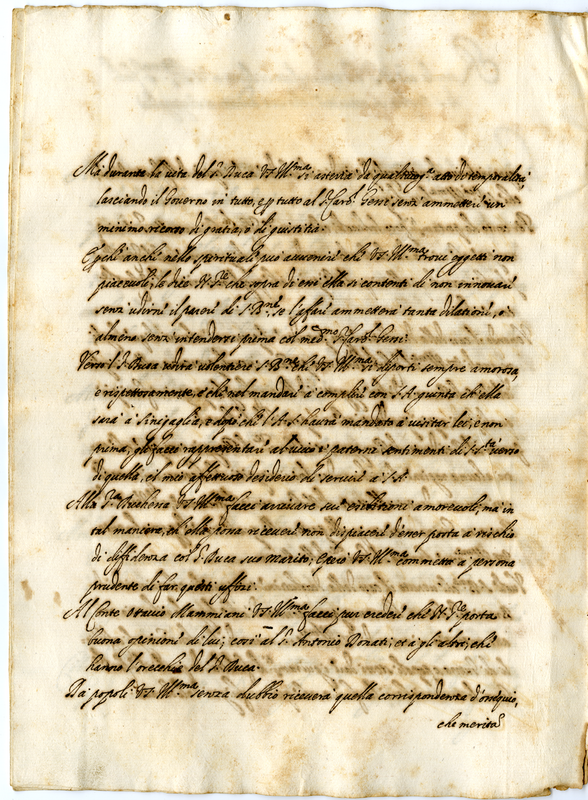 Ma durante la vita del S. Duca V.S. Ill.ma si asterrà da qualunq. atto di temporalità,
lasciando il Governo in tutto, e p tutto al S. Card. Gessi senz ammettere un
minimo ricorso di gratia, ò di giustitia.
E perche anche nello spirituale può avvenire che V.S. Ill.ma trovi oggetti non
piacevoli, hà N. S.re che sopra di essi ella si contenti di non innovare
senz udirne il parere di S. B.ne, se l'affare ammetterà tanta dilatione, ò
almeno senz intendersi prima col med.mo S. Card. Gessi.
Verso 'l S. Duca vedrà volentieri S. B.ne che V.S. Ill.ma si diporti sempre amorosa,
e rispettosamente, e che nel mandare a complire con S. A. giunta ch' ella
sarà à Sinigaglia, e dopo che l'A. S. havrà mandato a visitar lei, e non
prima, gli facci rappresentare al vivo i paterni sentimenti di S. S.tà verso
di quella, e 'l mio affettuoso desiderio di servire a S. A.
Alla S.ra Duchessa V.S. Ill.ma facci arrivare sue esibitioni amorevoli, ma in
tal maniera, ch' ella possa ricevere non dispiacere d'esser posta a rischio
di diffidenza col S. Duca suo marito; e però V.S. Ill.ma commetta a persona
prudente di far questi uffizi.
Al Conte Ottavio Mammiani V.S. Ill.ma facci pur credere che N. S.re porta
buona opinione di lui; così al S. Antonio Donati; et a gli altri, che
hanno l'orecchia del S. Duca.
Da popoli V.S. Ill.ma senza dubbio riceverà quella corrispondenza d'ossequio,
che merita